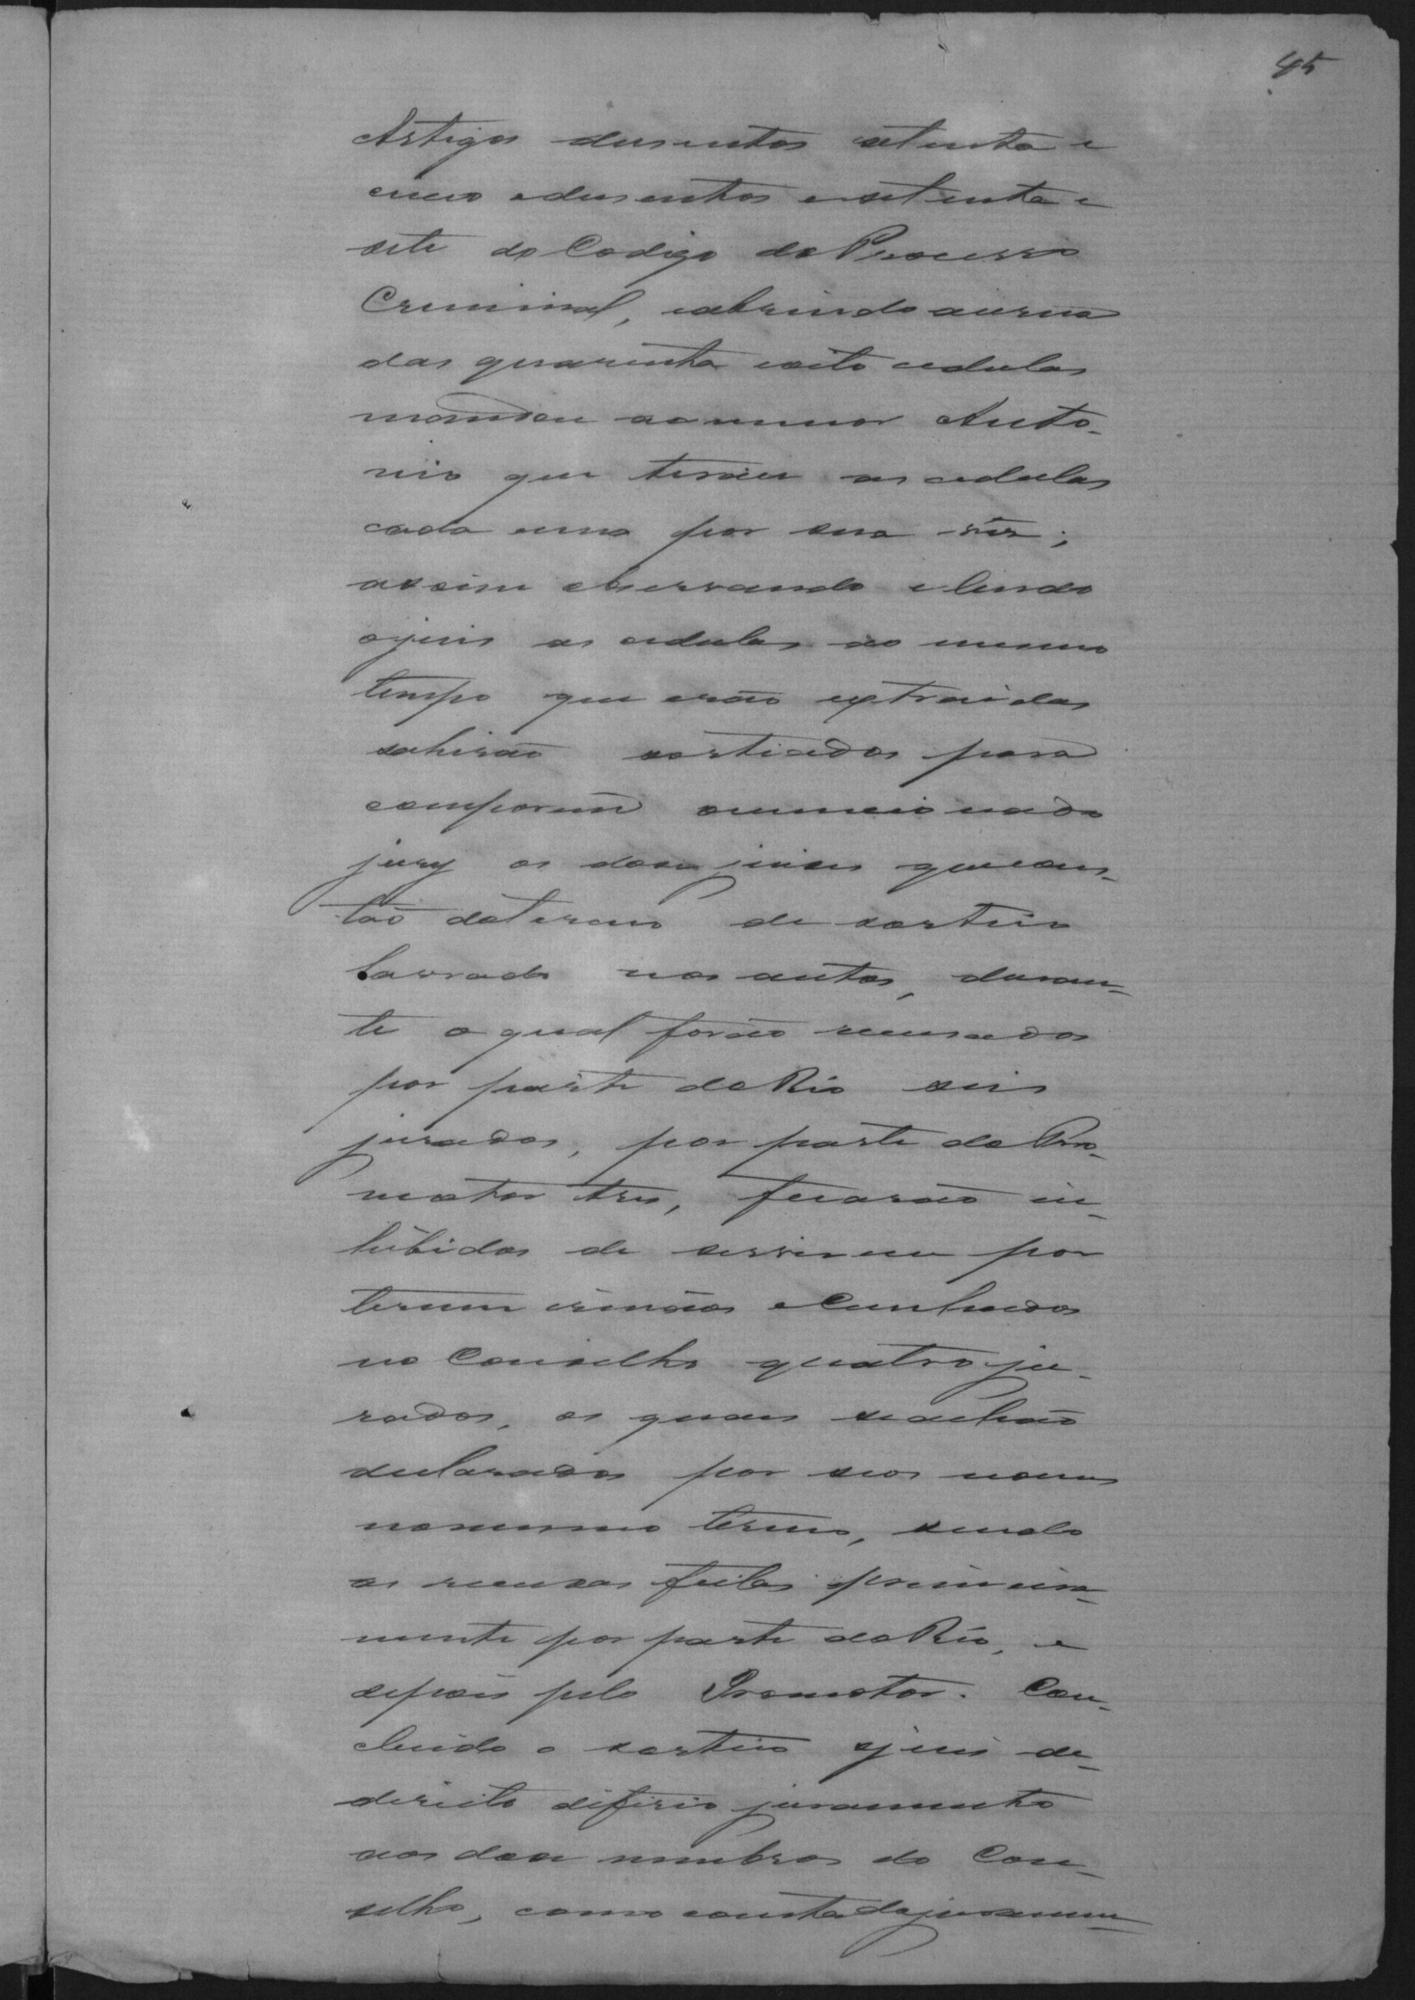 45
Artigos dusentos setenta e
cinco e dusentos e setenta e
sete do Codigo do Processo
Criminal, e abrindo a urna
das quarenta e oito cedulas
mandou ao menor Anto-
nio que tirou as cedulas
cada uma por sua vez;
assim observando e lendo
o juis as cedulas ao mesmo
tempo que erão extraidas
sahirão sorteados para
comporem o mencionado
jury os dose juises que cons-
tão do termo de sorteio
lavrado nos autos, duran-
te o qual forão recusados
por parte do Réo seis
jurados, por parte do Pro-
motor tres, ficarão in-
hibidos de servirem por
terem irmãos e Cunhados
no Conselho quatro ju-
rados, os quaes se achão
declarados por seos nomes
no mesmo termo, sendo
as recusas feitas primeira-
mente por parte do Réo, e
depois pelo Promotor. Con-
cluido o sorteio o juis de
direito diferio juramento
aos dose membros do Con-
selho, como consta do juramen-